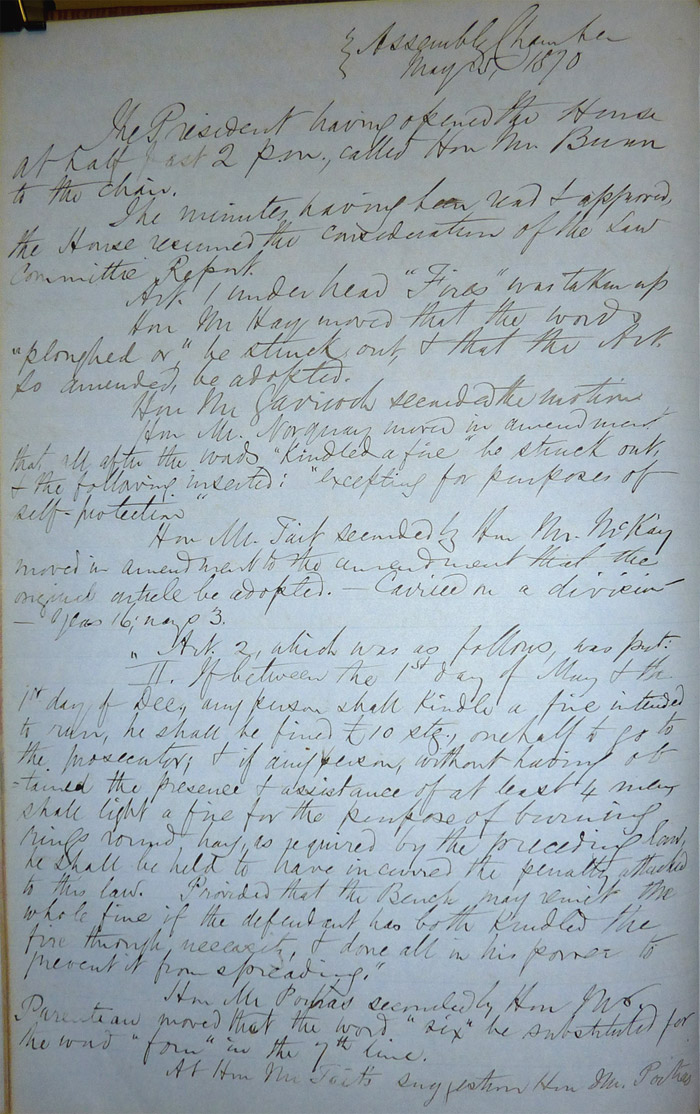 Assembly Chamber
May 25, 1870
The President having opened the House
at half past 2 p.m., called Hon Mr. Bunn
to the chair.
The minutes having been read & approved,
the House resumed the consideration of the Law
Committee Report.
Art. 1 under head "Fires" was taken up
Hon Mr Hay moved that the words
"ploughed or" be struck out, & that the Art.
so amended, be adopted.
Hon Mr seconded the motion
Hon Mr. Norquay moved in amendment
that all after the words "kindled a fire" be struck out,
& the following inserted: "excepting for purposes of
self-protection"
Hon Mr. Tait seconded by Hon Mr. McKay
moved in amendment to the amendment that the
original article be adopted. — Carried on a division
— Yeas 16; nays 3.
" Art. 2, which was as follows, was put:
II. If between the 1st day of May & the
1st day of Decr, any person shall kindle a fire intended
to run, he shall be fined £10 stg., one half to go to
the prosecutor; & if any person, without having ob
-tained the presence & assistance of at least 4 men
shall light a fire for the purpose of burning
rings round hay, as required by the preceding law,
he shall be held to have incurred the penalty attached
to this law. Provided that the Bench may remit the
whole fine if the defendant has both kindled the
fire through necessity, & done all in his power to
prevent it from spreading."
Hon Mr Poitras seconded by Hon Mr.
Parenteau moved that the word "six" be substituted for
the word "four" in the 7th line.
At Hon Mr Tait's suggestion Hon Mr. Poitras